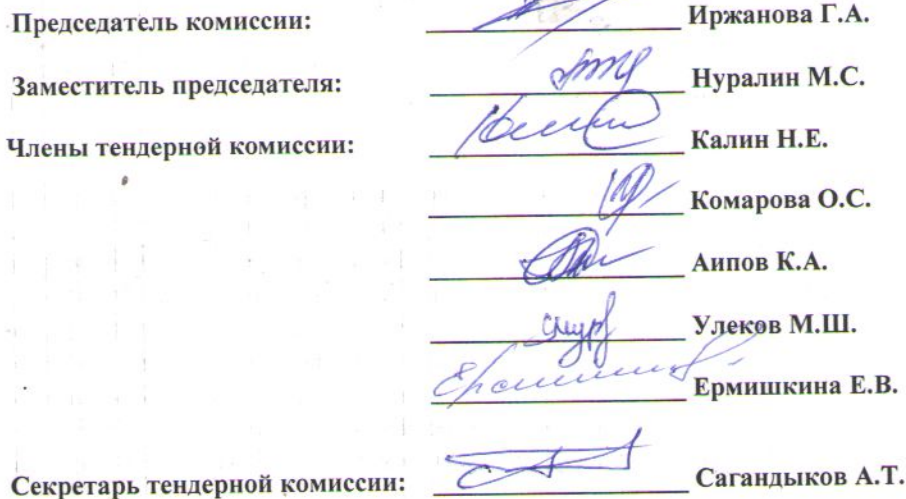 Председатель комиссии: Иржанова Г.А.
Заместитель председателя: Нуралин М.С.
Члены тендерной комиссии: Калин Н.Е.
Комарова О.С.
Аипов К.А.
Улеков М.Ш.
Ермишкина Е.В.
Секретарь тендерной комиссии: Сагандыков А.Т.